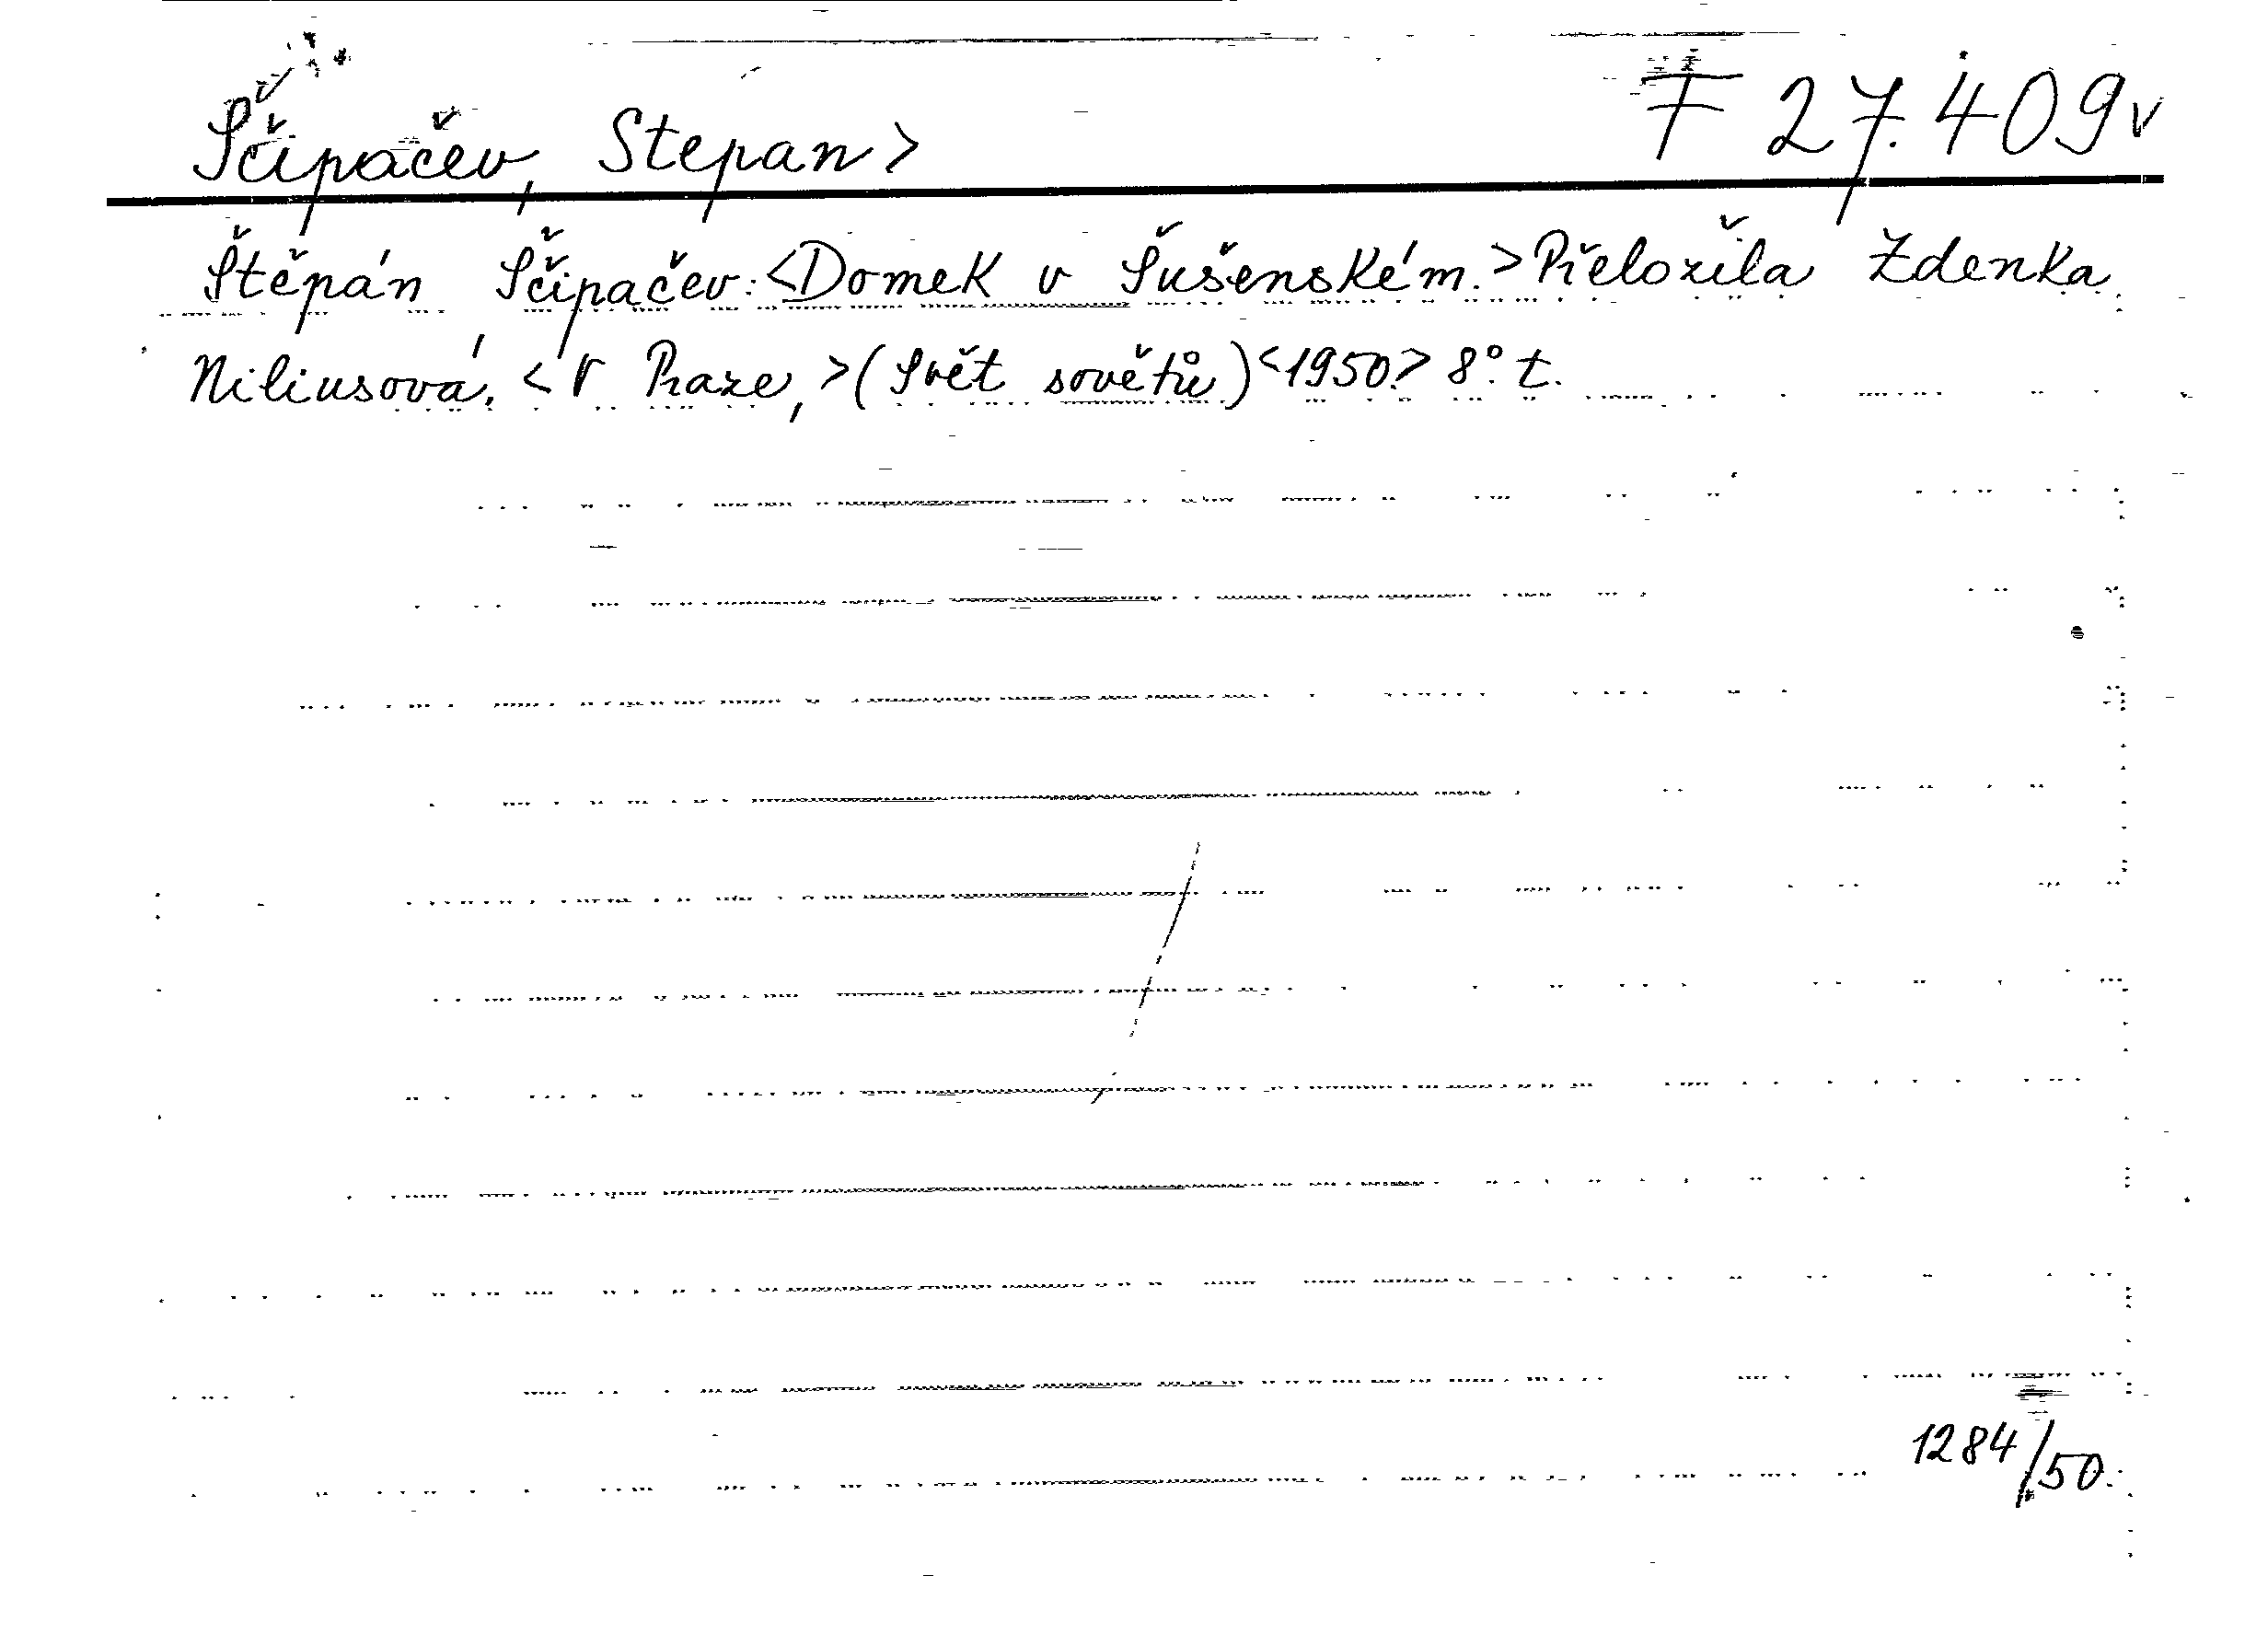 Ščipačev, Stepan> F 27.409v
Štěpán Ščipačev: <Domek v Šušenském.> Přeložila Zdenka
Niliusová. <V Praze,> (Svět sovětů) <1950.> 8°. t.
1284/50.